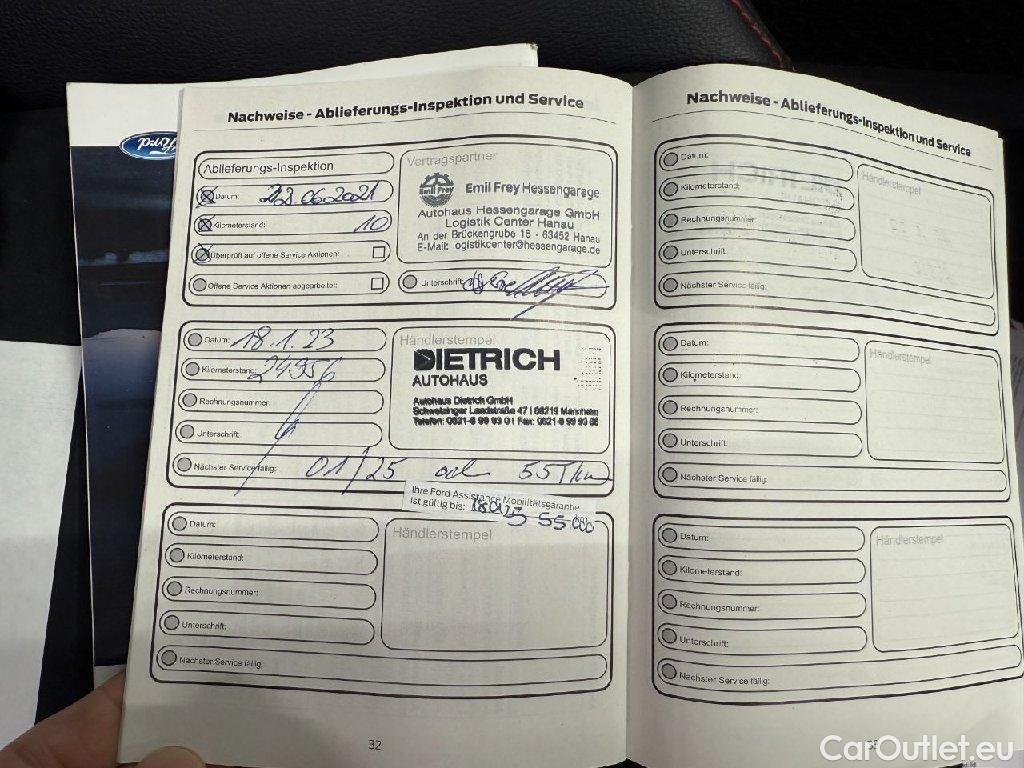 Ford
Nachweise - Ablieferungs-Inspektion und Service
Ablieferungs-Inspektion
Datum: 23.06.2021
Kilometerstand: 10
Überprüft auf offene Service Aktionen:
Offene Service Aktionen abgearbeitet:
Vertragspartner
Emil Frey
Emil Frey Hessengarage
Autohaus Hessengarage GmbH
Logistik Center Hanau
An der Brückengrube 16 - 63452 Hanau
E-Mail: logistikcenter@hessengarage.de
Unterschrift:
Datum: 18.1.23
Kilometerstand: 24956
Rechnungsnummer:
Unterschrift:
Nächster Service fällig: 01/25 od 55Tkm
Händlerstempel
DIETRICH
AUTOHAUS
Autohaus Dietrich GmbH
Schwetzinger Landstraße 47 | 68219 Mannheim
Ihre Ford Assistance Mobilitätsgarantie
ist gültig bis: 55.000
Datum:
Kilometerstand:
Rechnungsnummer:
Unterschrift:
Nächster Service fällig:
Händlerstempel
32
Nachweise - Ablieferungs-Inspektion und Service
Datum:
Kilometerstand:
Rechnungsnummer:
Unterschrift:
Nächster Service fällig:
Händlerstempel
Datum:
Kilometerstand:
Rechnungsnummer:
Unterschrift:
Nächster Service fällig:
Händlerstempel
Datum:
Kilometerstand:
Rechnungsnummer:
Unterschrift:
Nächster Service fällig:
Händlerstempel
CarOutlet.eu